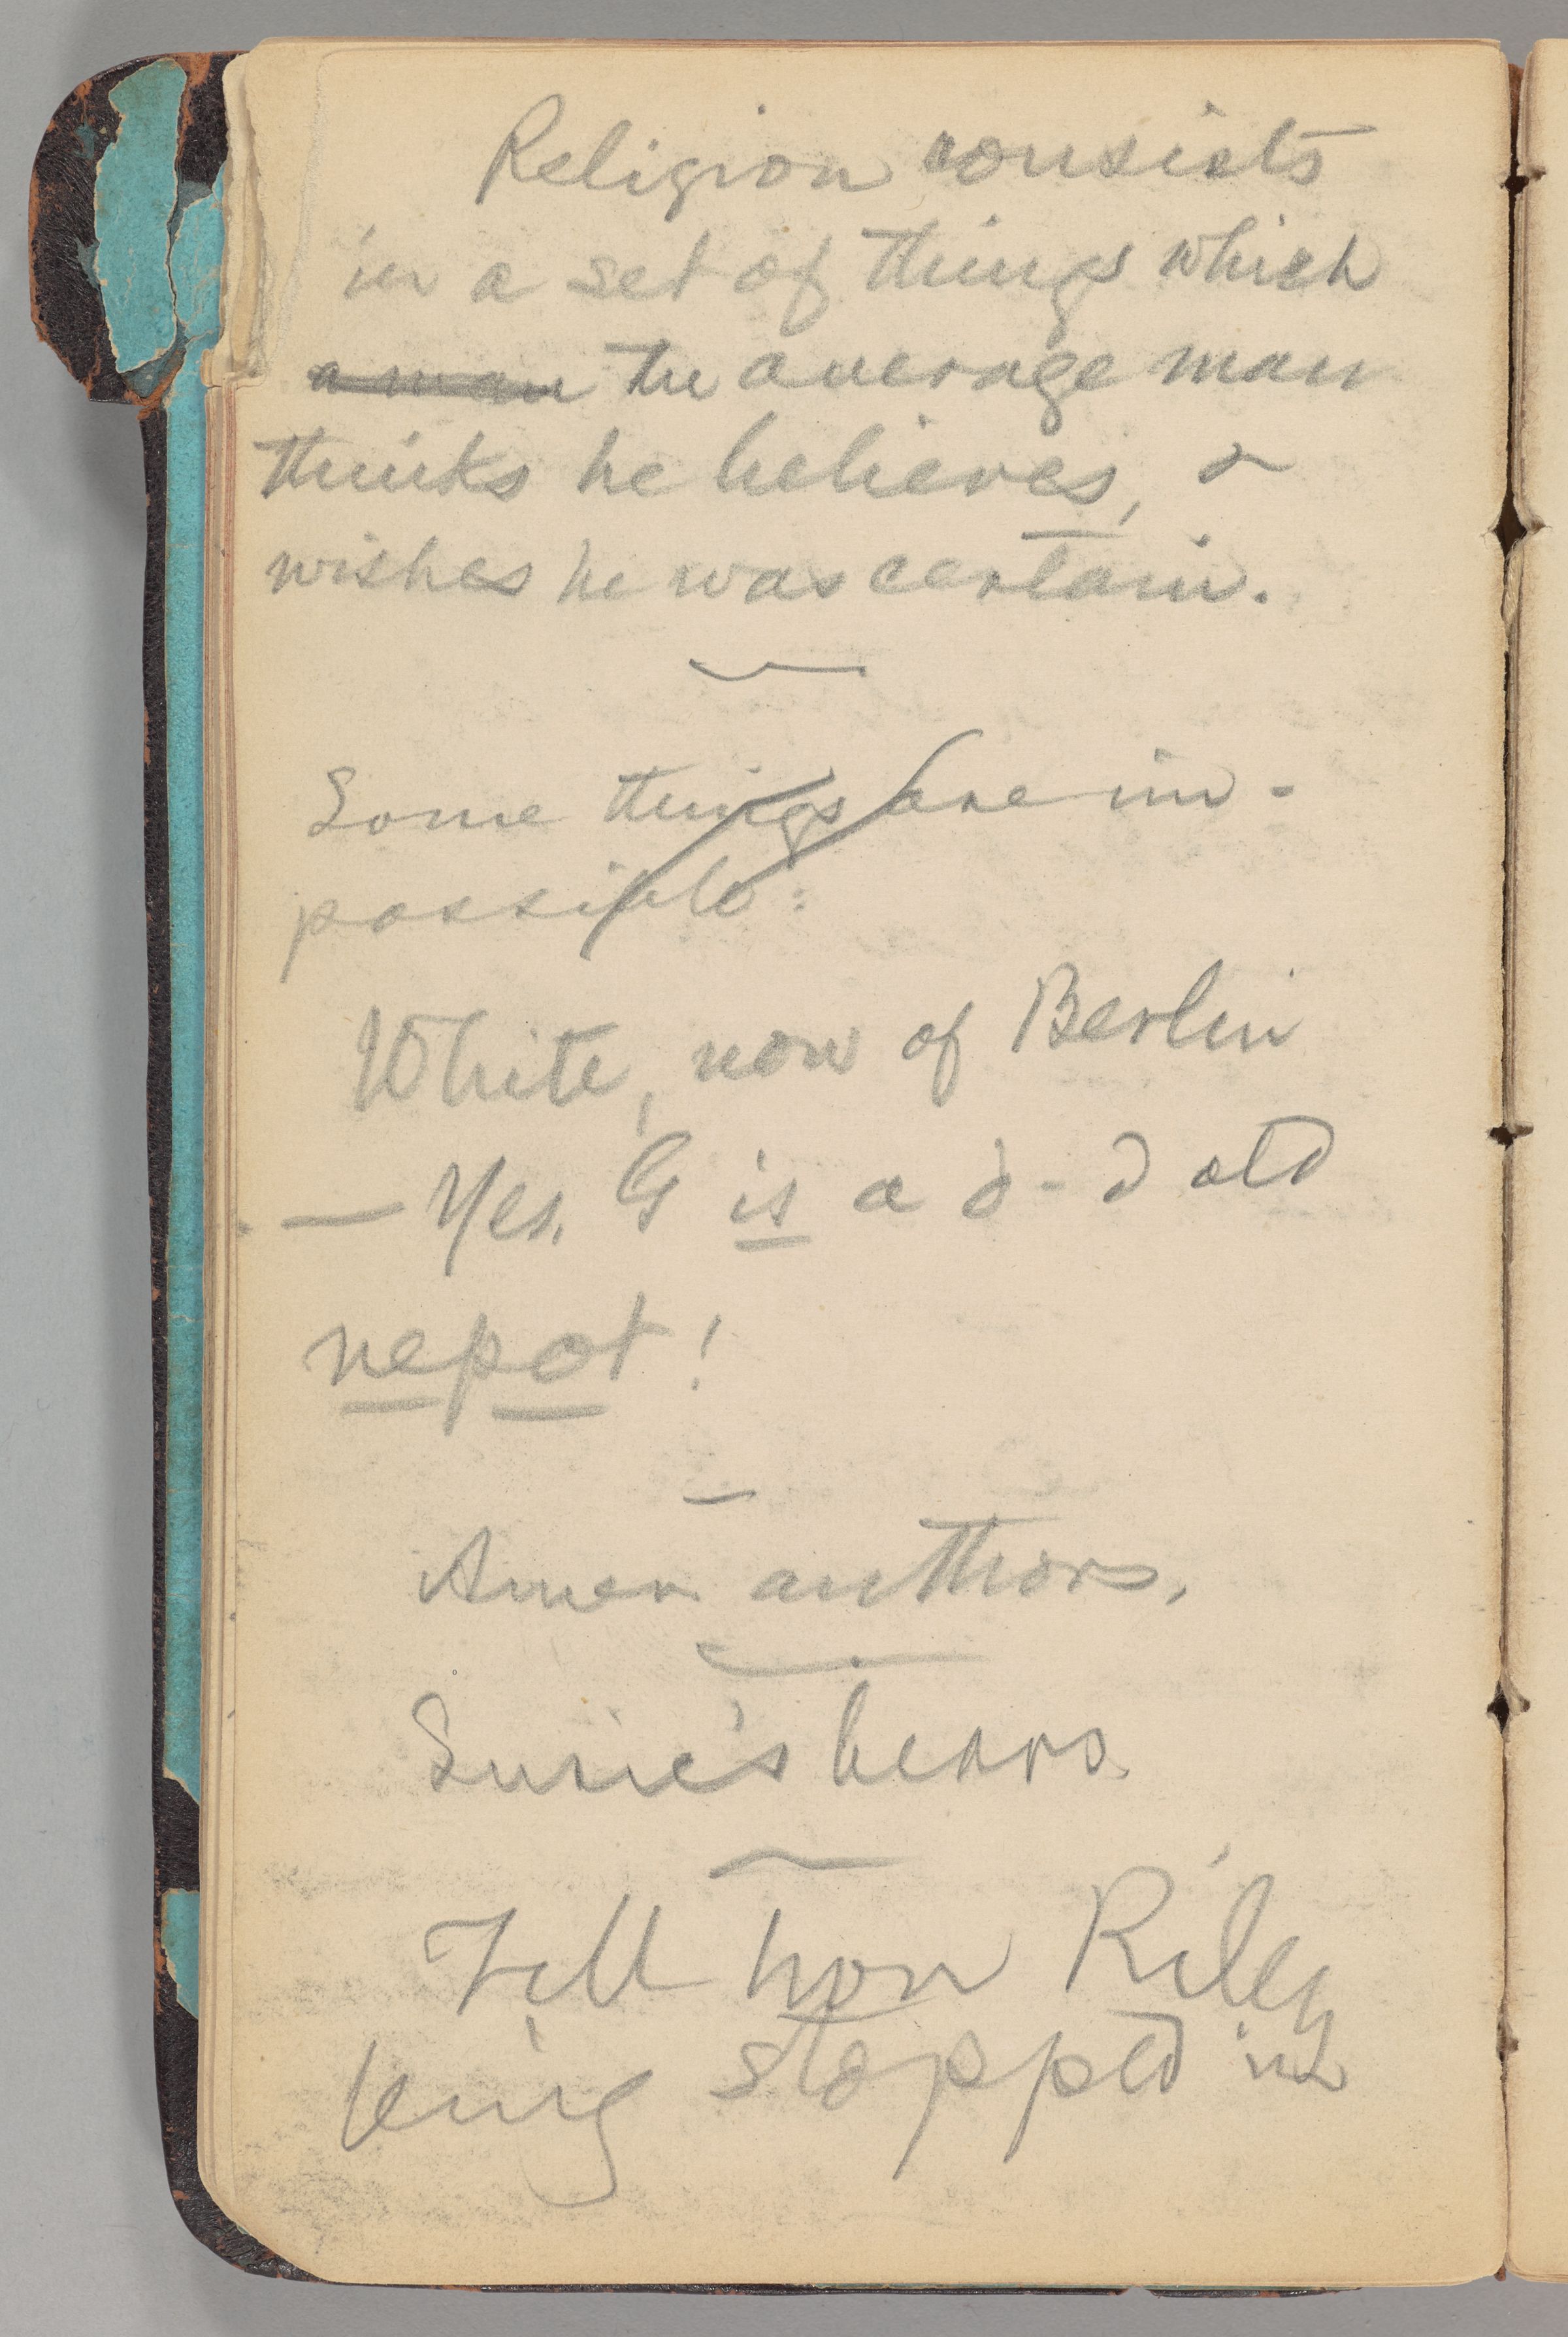 Religion consists
in a set of things which
a man the average man
thinks he believes, &
wishes he was certain.
Some things are im-
possible:
White, now of Berlin
— Yes, G is a d-d old
nepot!
Amer authors.
Susie's bears.
Tell how Riley
being stopped in